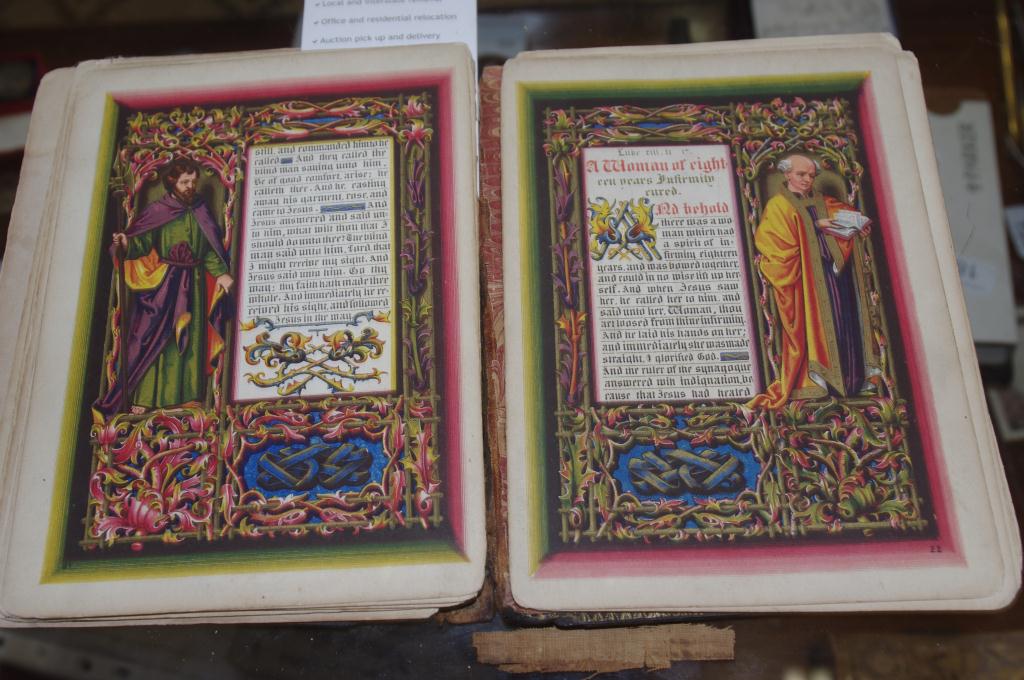 ✓ Local and interstate removal
✓ Office and residential relocation
✓ Auction pick up and delivery
still, and commanded him to be
called And they called the
blind man saying unto him,
Be of good comfort, arise; he
calleth thee. And he, casting
away his garment, rose, and
came to Jesus. And
Jesus answered and said un
to him, what wilt thou that I
should do unto thee? The blind
man said unto him, Lord that
I might receive my sight. And
Jesus said unto him, Go thy
way; thy faith hath made thee
whole. And immediately he re
ceived his sight, and followed
Jesus in the way.
Luke XIII. 11 17.
A Woman of eight
een years Infirmity
cured.
Nd behold
there was a wo
man which had
a spirit of in
firmity eighteen
years, and was bowed together,
and could in no wise lift up her
self. And when Jesus saw
her, he called her to him, and
said unto her, Woman, thou
art loosed from thine infirmity.
And he laid his hands on her;
and immediately she was made
straight, & glorified God.
And the ruler of the synagogue
answered with indignation, be
cause that Jesus had healed
22